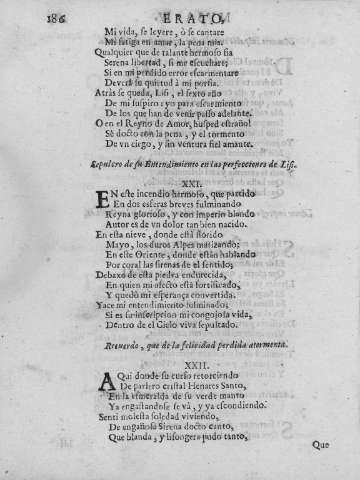 186 ERATO,
Mi vida, se leyere, ò se cantare
Mi fatiga en amar, la pena mia.
Qualquier que de talante hermoso fia
Serena libertad, si me escuchare;
Si en mi perdido error escarmentare
Deverà su quietud à mi porfia.
Atràs se queda, Lisi, el sexto año
De mi suspiro: yo para escarmiento
De los que han de venir passo adelante.
O en el Reyno de Amor, huesped estraño!
Sè docto con la pena, y el tormento
De vn ciego, y sin ventura fiel amante.
Sepulcro de su Entendimiento en las perfecciones de Lisi.
XXI.
EN este incendio hermoso, que partido
En dos esferas breves fulminando
Reyna glorioso, y con imperio blando
Autor es de vn dolor tan bien nacido.
En esta nieve, donde està florido
Mayo, los duros Alpes matizando;
En este Oriente, donde estàn hablando
Por coral las sirenas de el sentido;
Debaxo de esta piedra endurecida,
En quien mi afecto està fortificado,
Y quedò mi esperança convertida.
Yace mi entendimiento fulminado;
Si es su inscripcion mi congojosa vida,
Dentro de el Cielo viva sepultado.
Recuerdo, que de la felicidad perdida atormenta.
XXII.
AQui donde su curso retorciendo
De parlero cristal Henares Santo,
En la esmeralda de su verde manto
Ya engastandose se và, y ya escondiendo.
Sentì molesta soledad viviendo,
De engañosa Sirena docto canto,
Que blanda, y lisongera pudo tanto,
Que